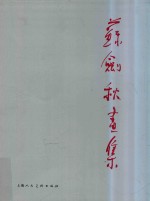 蘇劍秋畫集
上海人民美術出版社